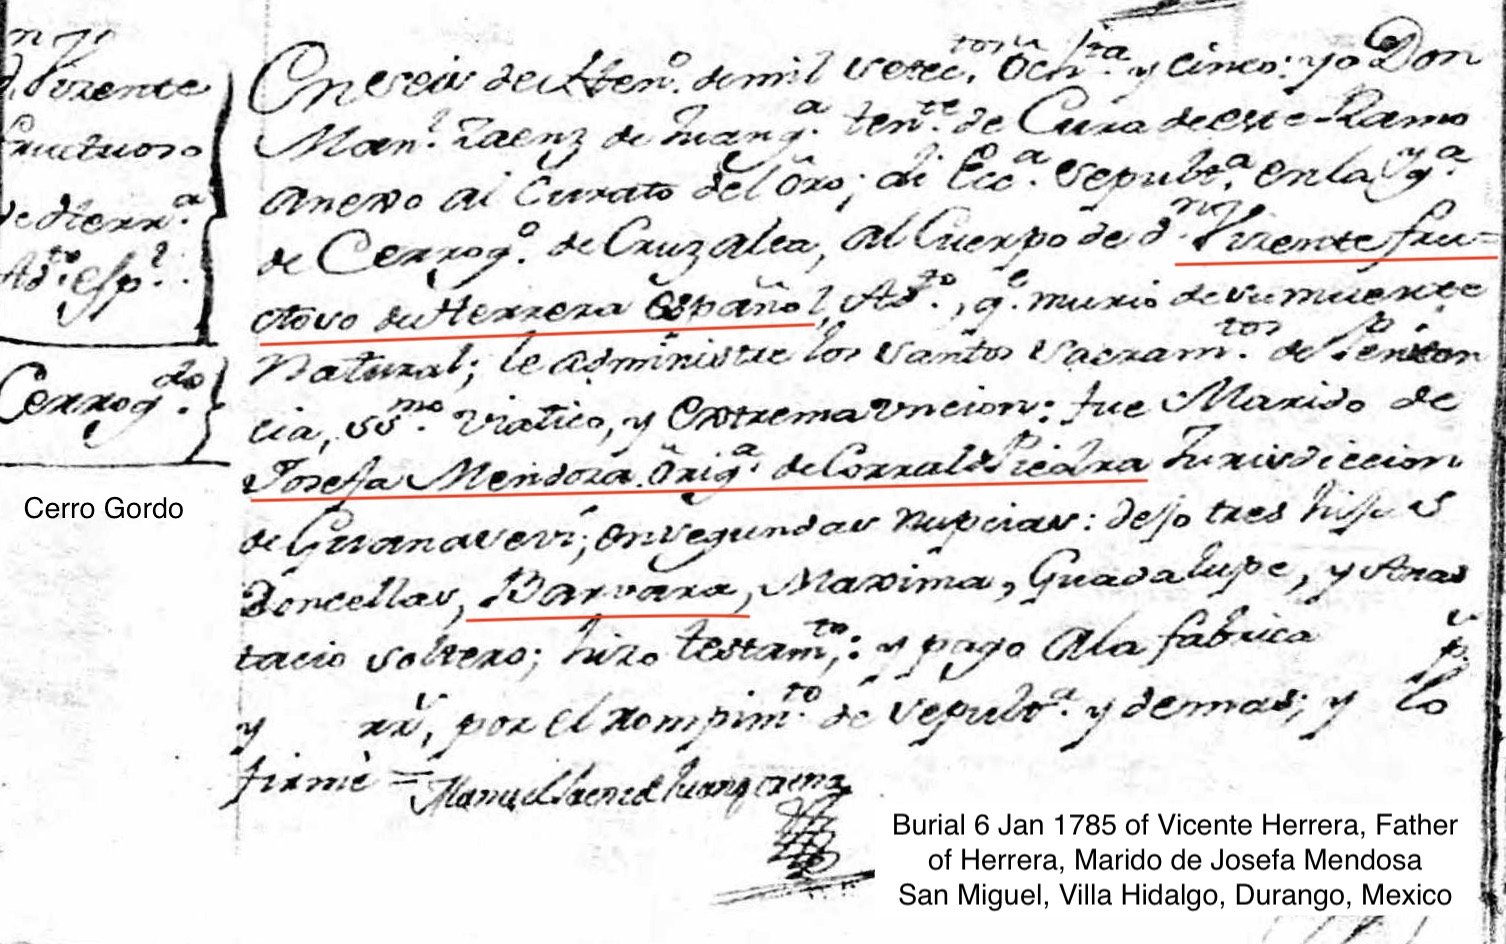 Dn.
Vizente
fructuoso
de Herra.
Adto. Espl.
Cerrogdo.
Cerro Gordo
En seis de Heno. de mil setectos. Ochta. y cinco: yo Don
Manl. Zaenz de Juangª. tente. de Cura de este Ramo
anexo al Curato del Oro; di Ecca. Sepultª. en la Ygª.
de Cerrogo. de Cruz alta, al Cuerpo de dn. Vizente fru=
ctoso de Herrera Español, Adto., qe. murio de su muerte
Natural; le administre los santos sacramtos. de Peniten
cia, SSmo. Viatico, y Extrema uncion: fue Marido de
Josefa Mendoza Origª. de Corral de Piedra Jurisdiccion
de Guanaseví; en segundas nupcias: dejo tres hijas
Doncellas, Barvara, Maxima, Guadalupe, y Anas
tacio soltero; hizo testamto.: y pago a la fabrica ps.
y rrs., por el rompimto. de sepultª. y demas; y lo
firmé = Manuel Saenz de Juangorena
Burial 6 Jan 1785 of Vicente Herrera, Father
of Herrera, Marido de Josefa Mendosa
San Miguel, Villa Hidalgo, Durango, Mexico